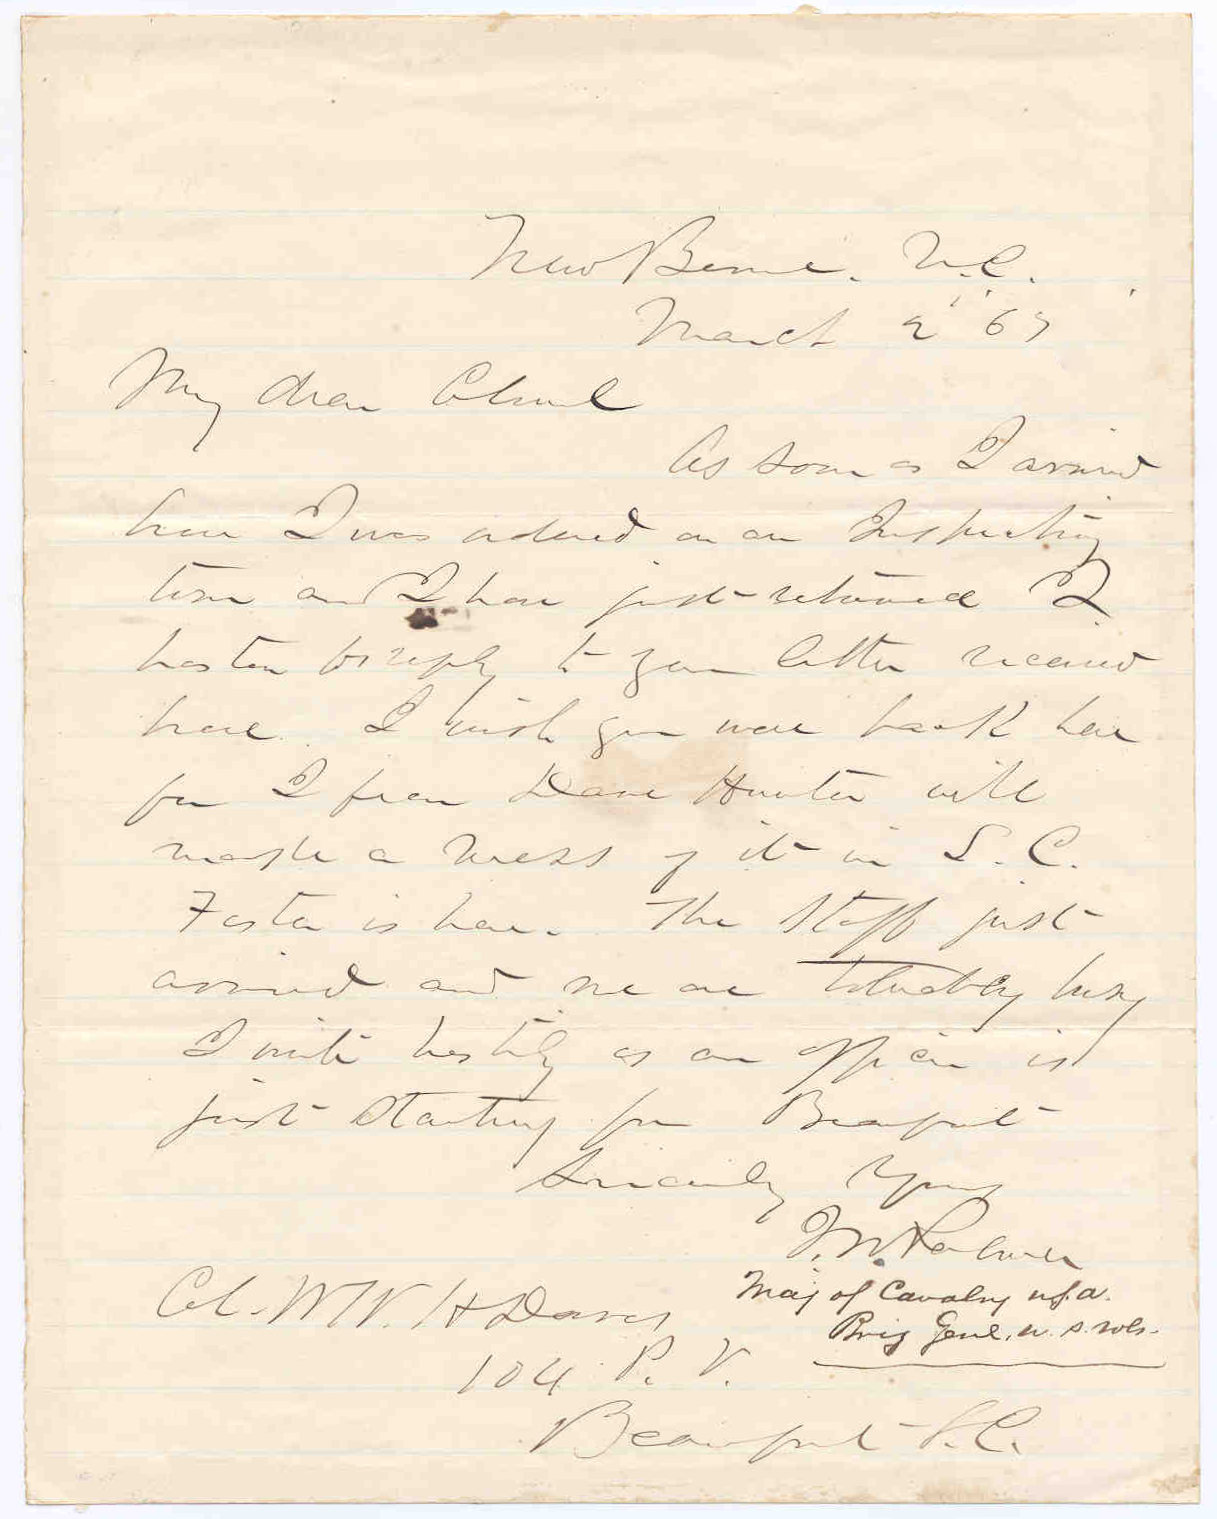 New Berne. N.C.
March 2" 63
My dear Colonel
As soon as I arrived
here I was ordered on an Inspecting
tour and I have just returned I
hasten to reply to your letter received
here. I wish you were back here
for I fear Dave Hunter will
make a mess of it in S. C.
Foster is here. The Staff just
arrived and we are busy
I write hastily as an officer is
just starting for Beaufort
Sincerely Yours
I. N. Palmer
Maj of Cavalry U.S.A.
Brig Genl. U. S. Vols.
Col. W W. H Davis
104 P. V.
Beaufort S.C.